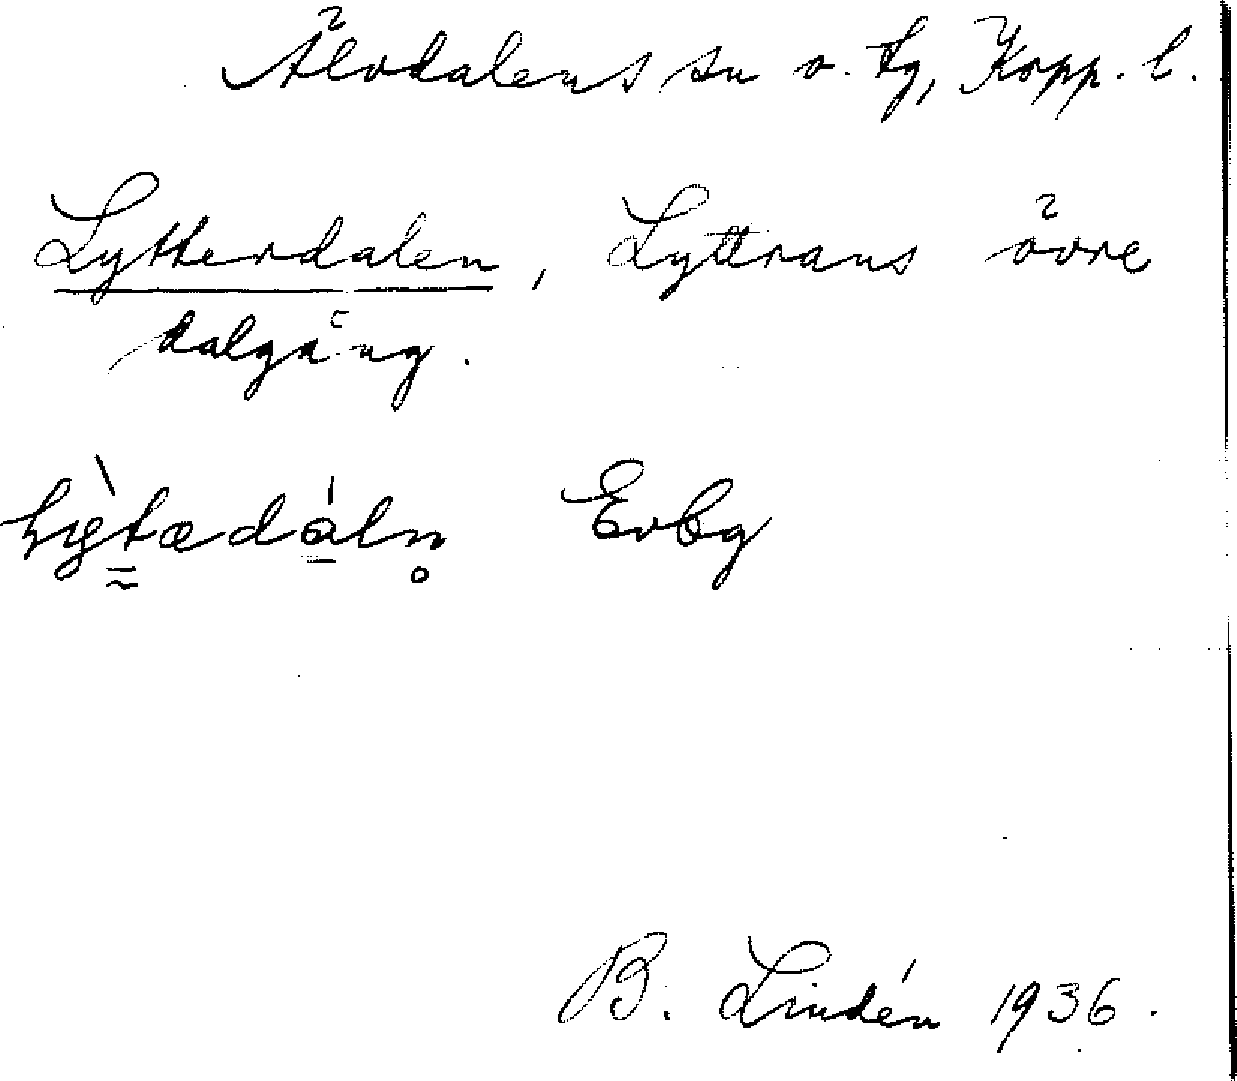 Älvdalens sn o. tg, Kopp. l.
Lytterdalen, Lyttrans övre
dalgång.
Evbg
B. Lindén 1936.